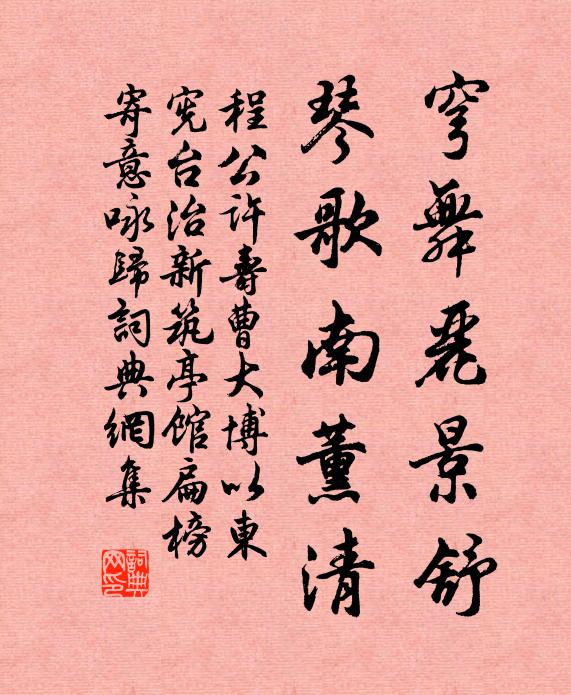 穹舞麗景舒
琴歌南薰清
程公許壽曹大博以東
宪台治新筑亭館扁榜
寄意咏歸詞典網集
詞典網印